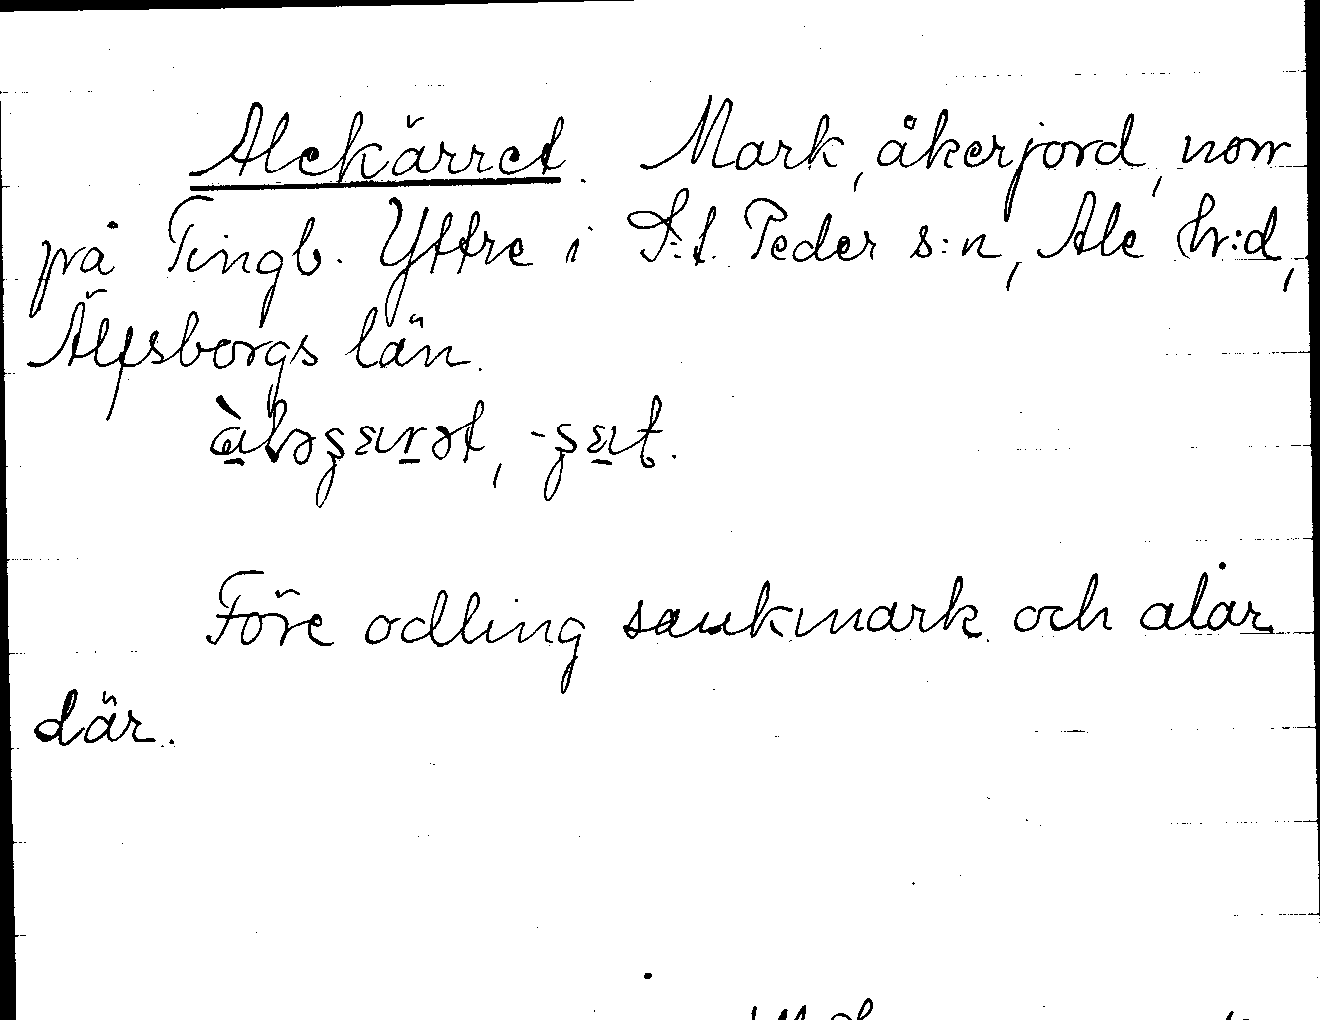 Alekärret. Mark, åkerjord, norr
på Tingb. Yttre i S:t. Peder s:n, Ale hr:d,
Älfsborgs län.
Före odling sankmark och alar
där.